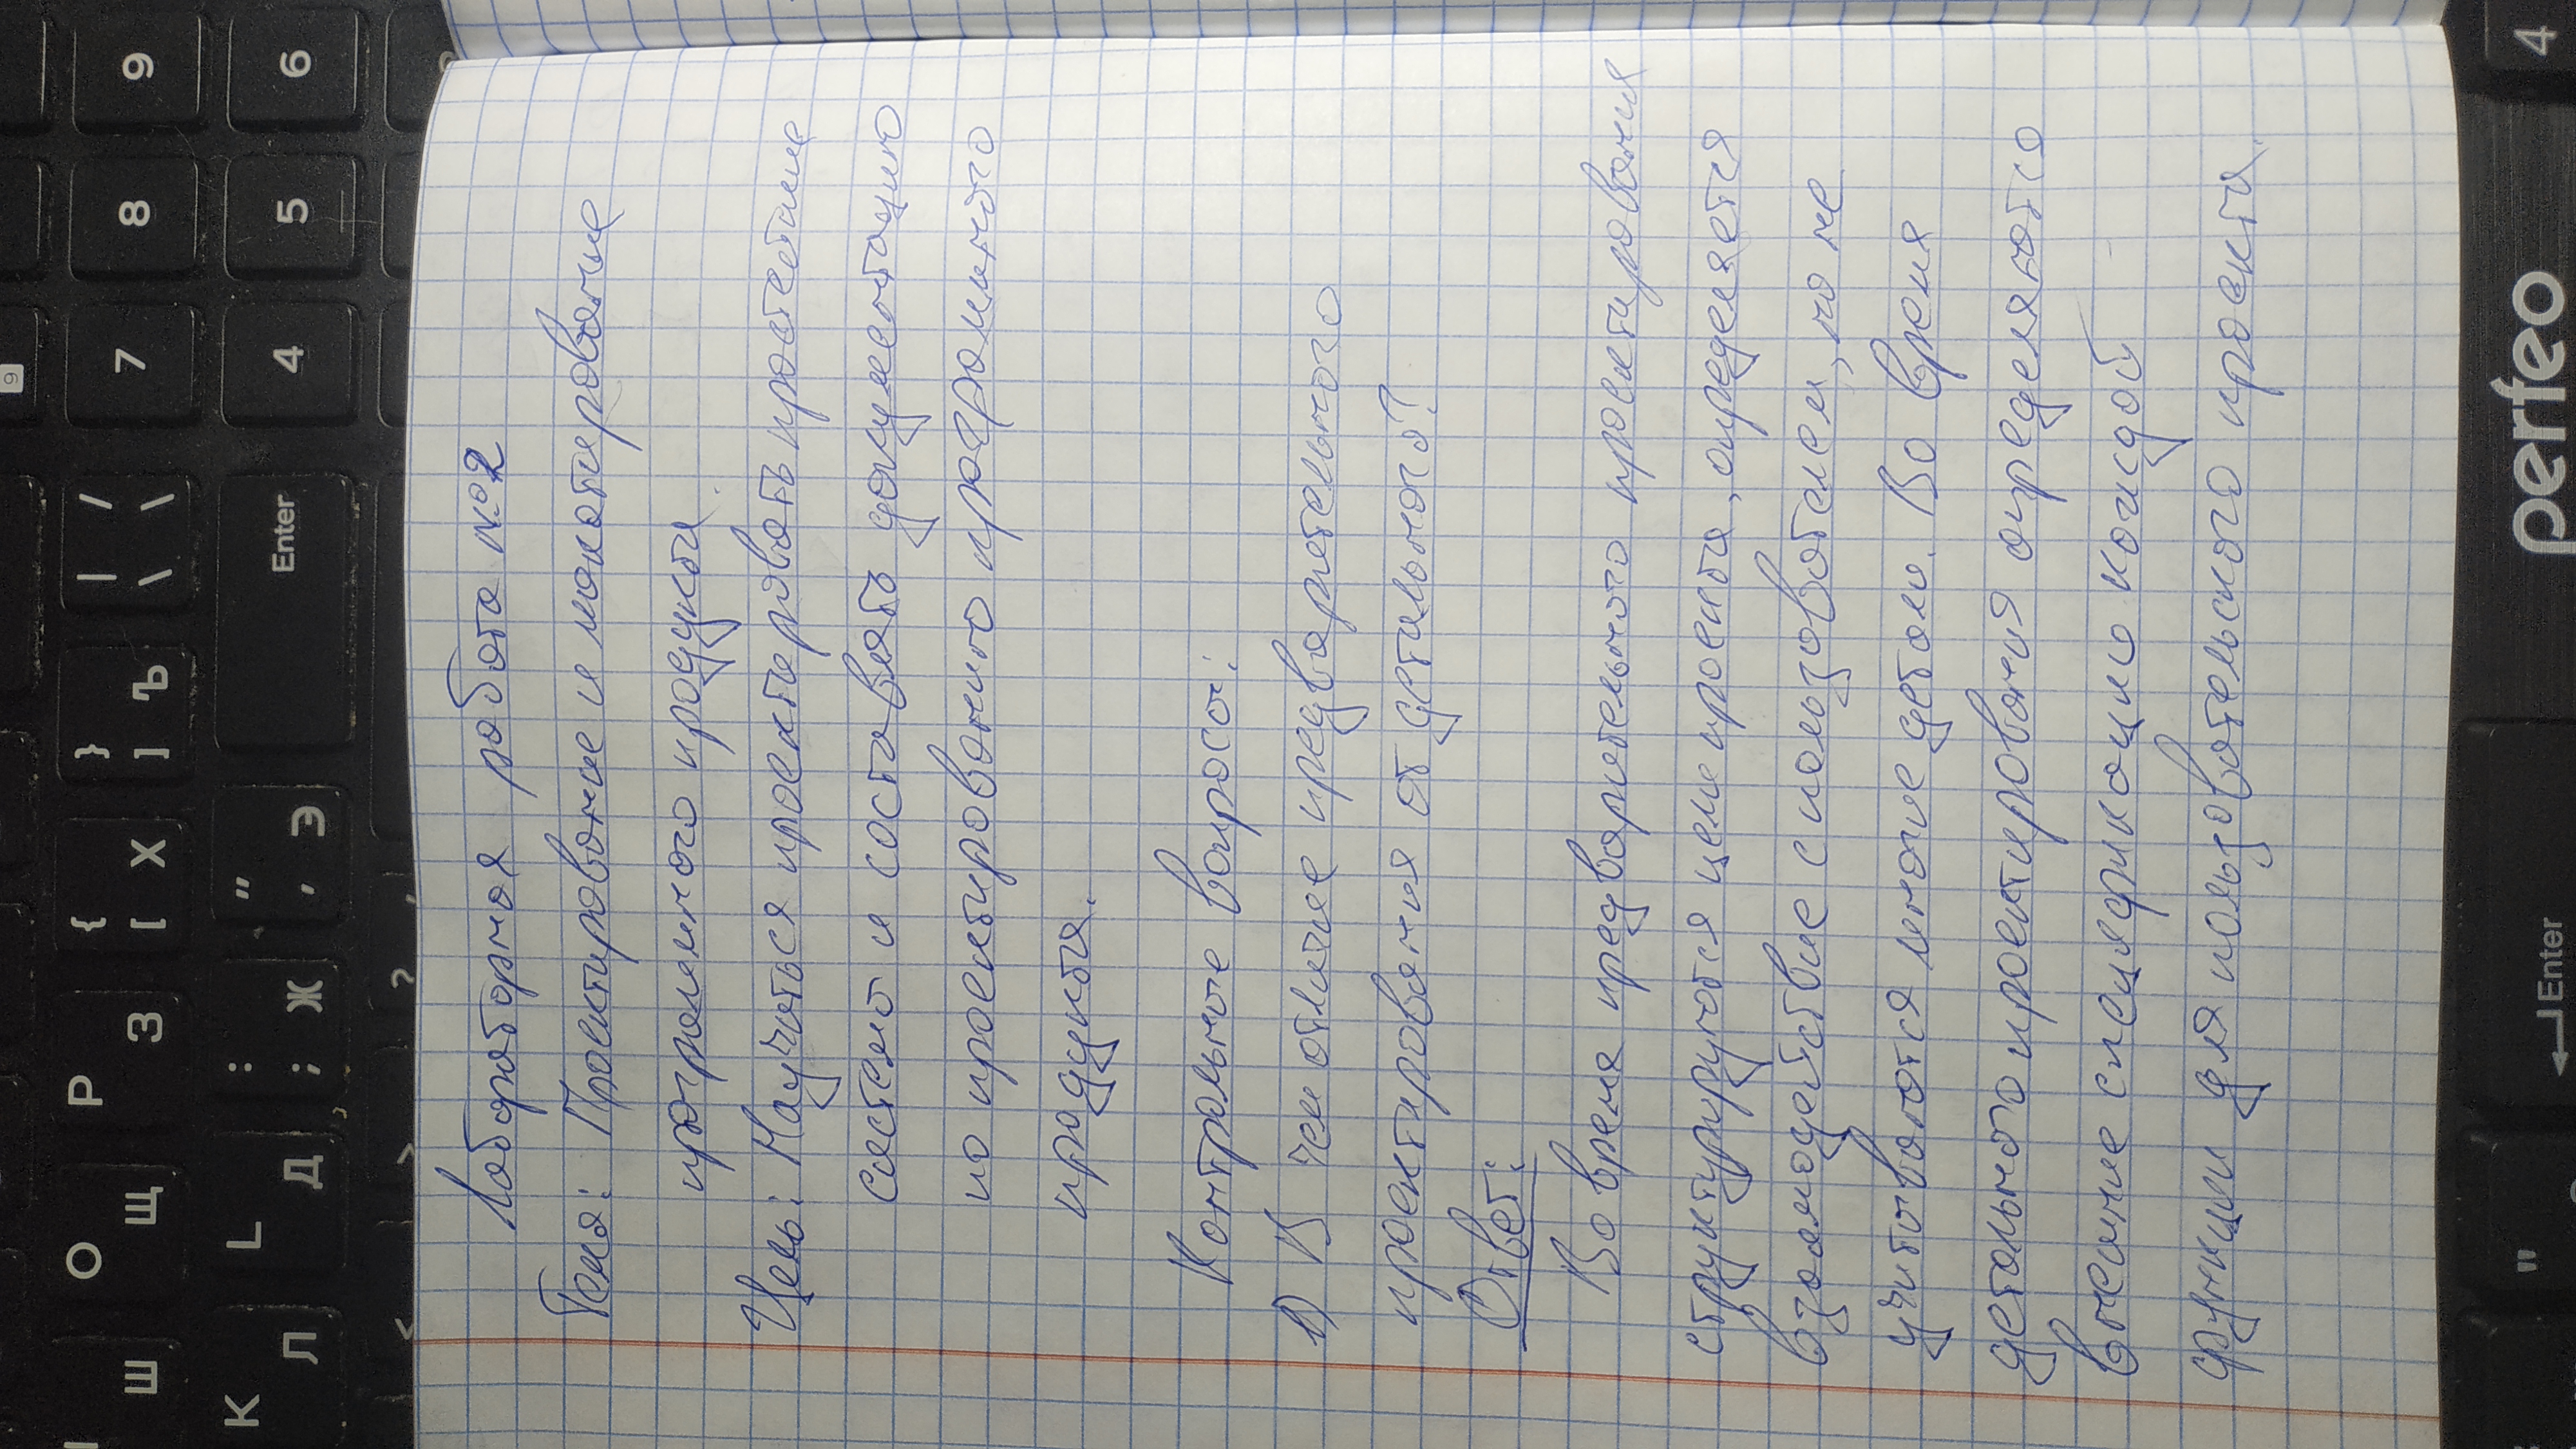 9
О Р { } | /
Ш Щ З [ Х ] Ъ \ \ 7 8 9
K L : "
Л Д ; Ж ' Э Enter 4 5 6
< > ? ,
Лабораторная работа №2
Тема: Проектирование и макетирование
программного продукта.
Цель: Научиться проектировать простейшие
системы и составлять документацию
по проектированию программного
продукта.
Контрольные вопросы:
1) В чем отличие предварительного
проектирования от детального?
Ответ:
Во время предварительного проектирования
структурируются цели проекта, определяется
взаимодействие с пользователем, но не
учитываются многие детали. Во время
детального проектирования определяются
внешние спецификации каждой
функции для пользовательского проекта.
" Enter perfeo 4